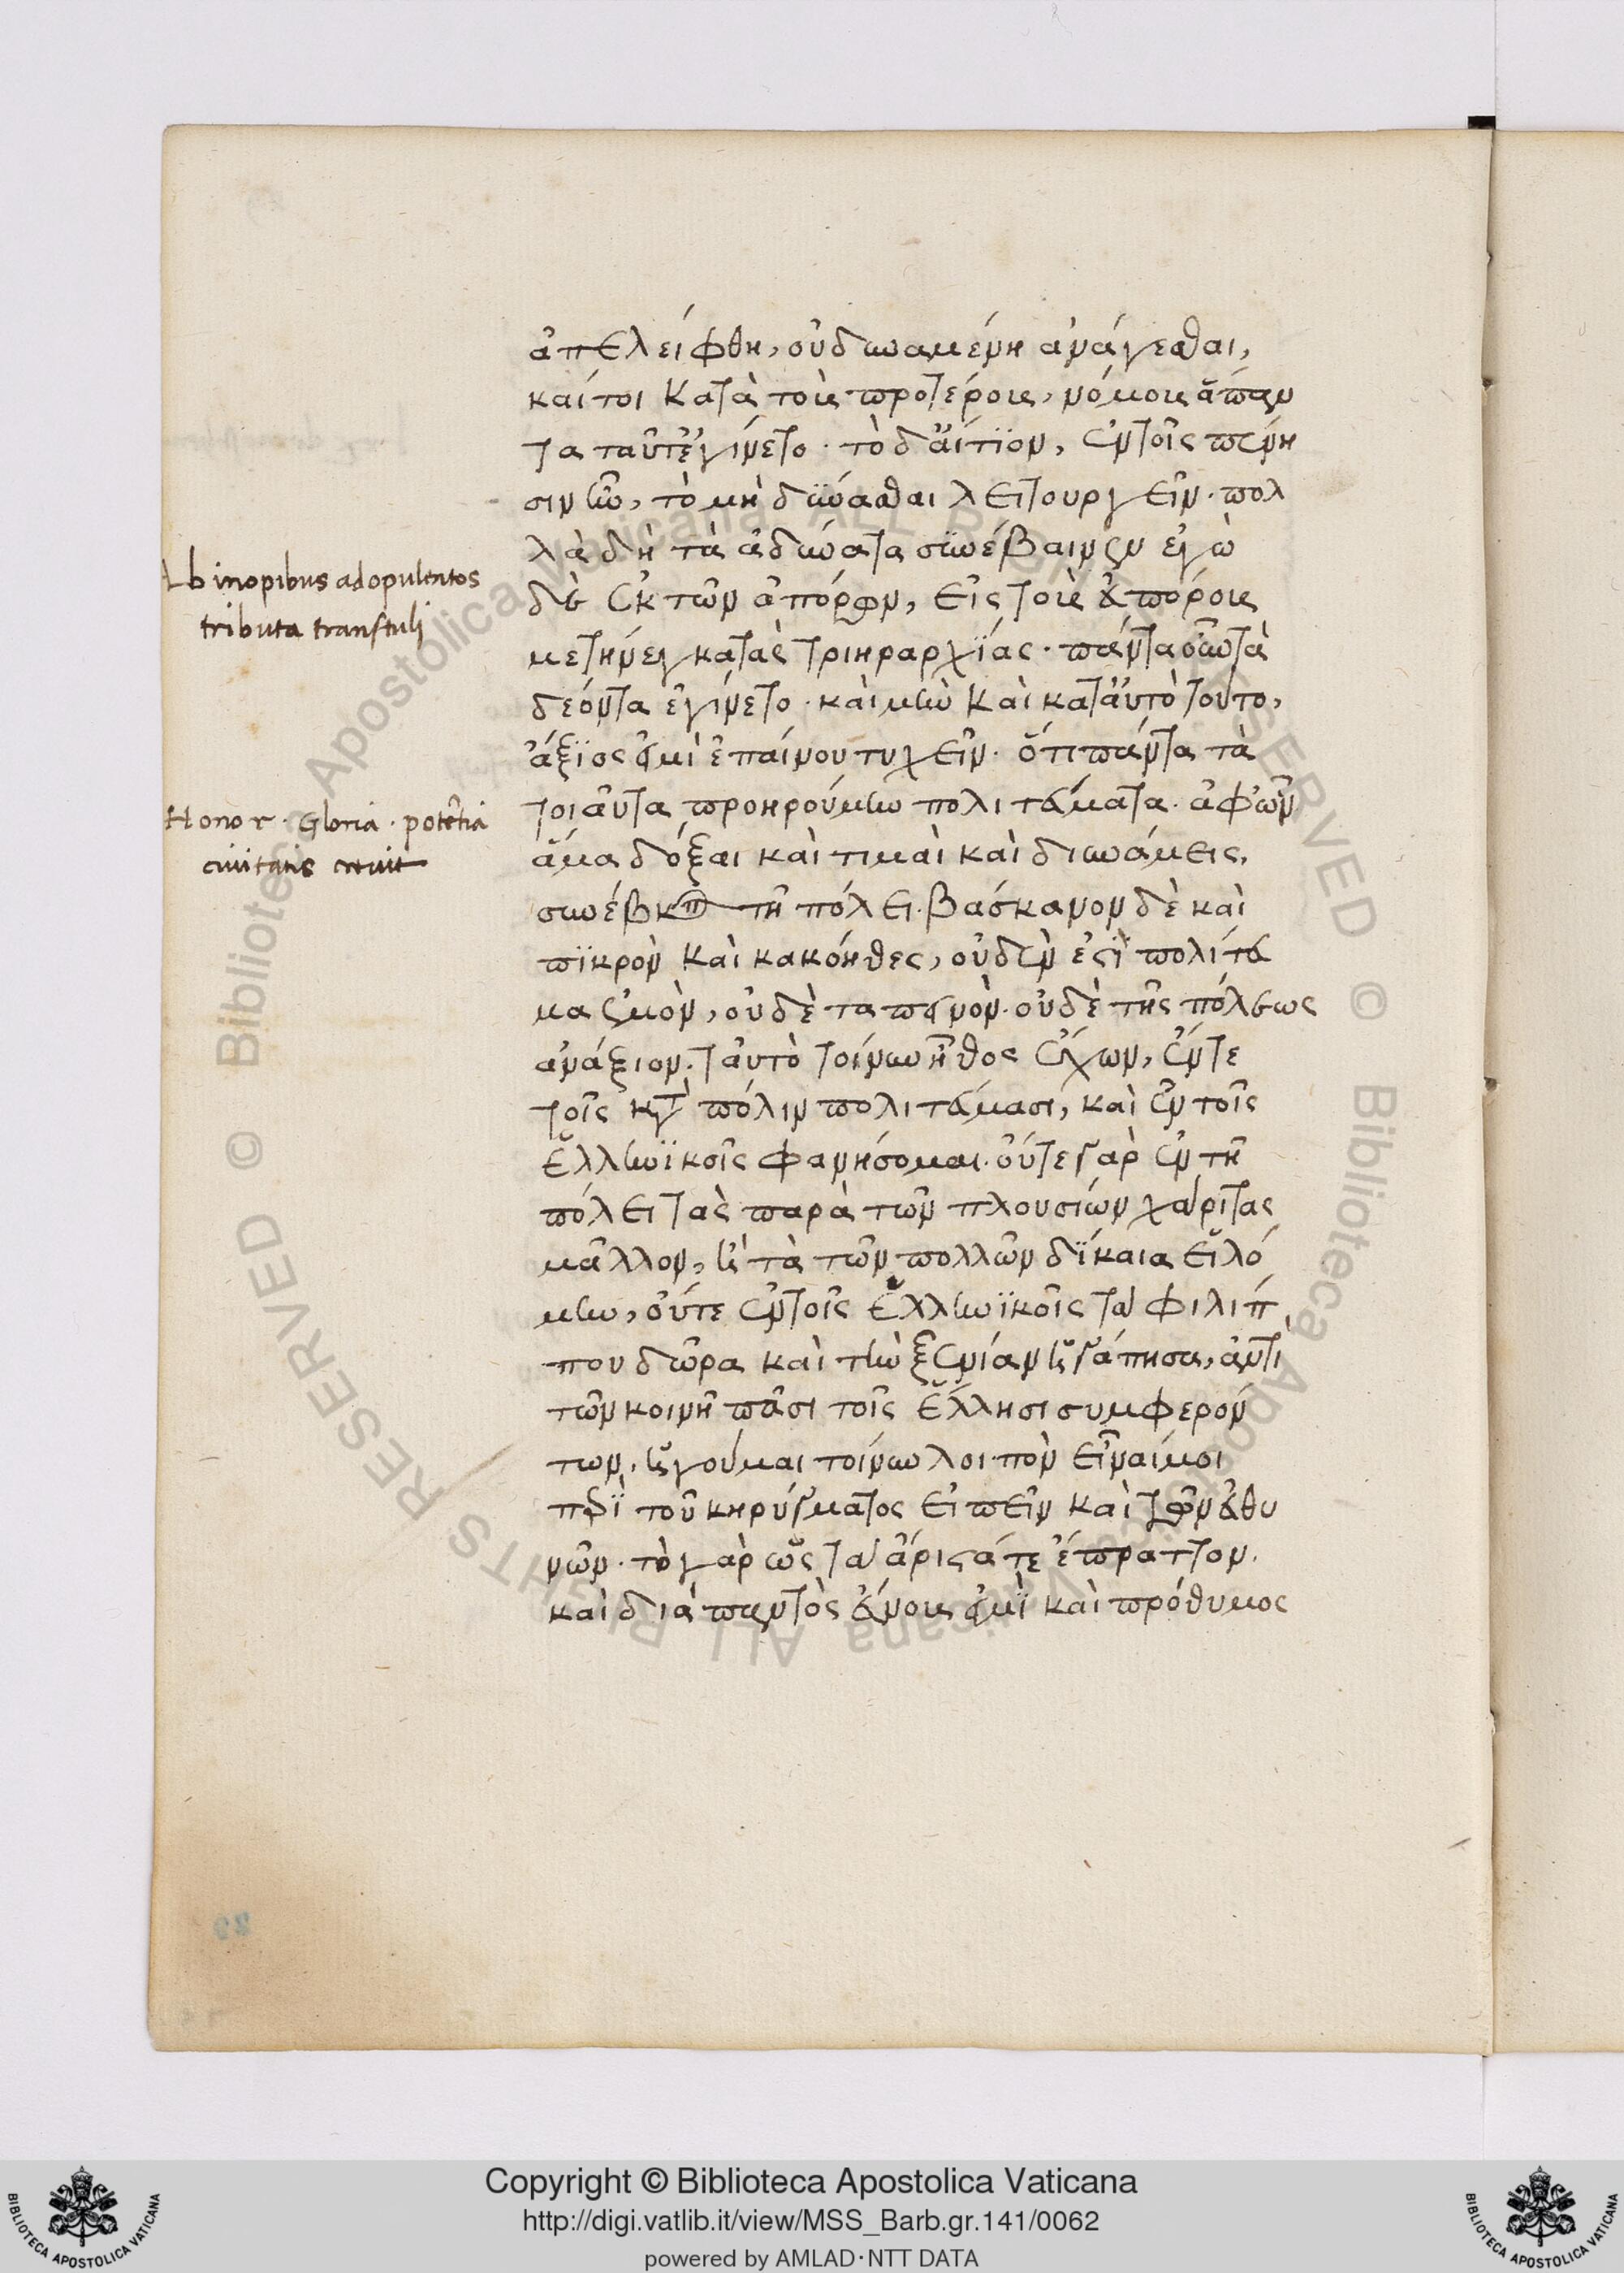 ἀπελείφθη, οὐ δυναμένη ἀνάγεσθαι,
καίτοι κατὰ τοὺς προτέρους, νόμους ἅπαν
τα ταῦτ' ἐγίνετο. τὸ δ' αἴτϊον, ἐν τοῖς πένη
σιν ἦν, τὸ μὴ δύνασθαι λειτουργεῖν. πολ
λὰ δὴ τὰ ἀδύνατα συνέβαινεν ἐγὼ
δὲ ἐκ τῶν ἀπόρων, εἰς τοὺς εὐπόρους
μετήνεγκα τὰς τριηραρχΐας. πάντ' οὖν τὰ
δέοντα ἐγίνετο. καὶ μὴν καὶ κατ' αὐτὸ τοῦτο,
ἄξϊος εἰμὶ ἐπαίνου τυχεῖν. ὅτι πάντα τὰ
τοιαῦτα προηρούμην πολιτεύματα. ἀφ' ὧν
ἅμα δόξαι καὶ τιμαὶ καὶ δυνάμεις,
συνέβαινον τῇ πόλει. βάσκανον δὲ καὶ
πϊκρὸν καὶ κακόηθες, οὐδέν ἐστϊ πολίτευ
μα ἐμὸν, οὐδὲ ταπεινὸν. οὐδὲ τῆς πόλεως
ἀνάξιον. ταὐτὸ τοίνυν ἦθος ἔχων, ἔν τε
τοῖς κατὰ πόλιν πολιτεύμασι, καὶ ἐν τοῖς
ἑλληνϊκοῖς φανήσομαι. οὔτε γὰρ ἐν τῇ
πόλει τὰς παρὰ τῶν πλουσίων χάριτας
μᾶλλον, ἢ τὰ τῶν πολλῶν δΐκαια εἱλό
μην, οὔτε ἐν τοῖς ἑλληνϊκοῖς τὰ φιλίπ
που δῶρα καὶ τὴν ξενίαν ἠγάπησα, ἀντὶ
τῶν κοινῇ πᾶσι τοῖς ἕλλησι συμφερόν
των. ἡγοῦμαι τοίνυν λοιπὸν εἶναί μοι
περὶ τοῦ κηρύγματος εἰπεῖν καὶ τῶν εὐθυ
νῶν. τὸ γὰρ ὡς τὰ ἄριστά τε ἔπραττον.
καὶ διὰ παντὸς εὔνους εἰμῒ καὶ πρόθυμος
Ab inopibus ad opulentos
tributa transtuli
Honor. Gloria. potẽtia
ciuitatis creuit
Copyright © Biblioteca Apostolica Vaticana
http://digi.vatlib.it/view/MSS_Barb.gr.141/0062
powered by AMLAD·NTT DATA